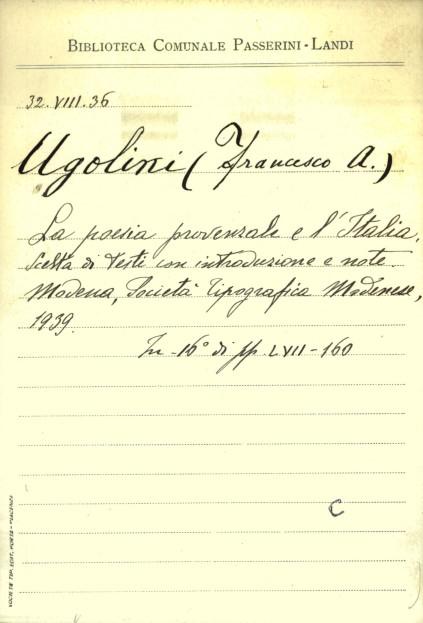 BIBLIOTECA COMUNALE PASSERINI-LANDI
32.VIII.36
Ugolini (Francesco A.)
La poesia provenzale e l'Italia.
Scelta di Testi con introduzione e note.
Modena, Società Tipografica Modenese,
1939.
In-16° di pp. LVII-160
C